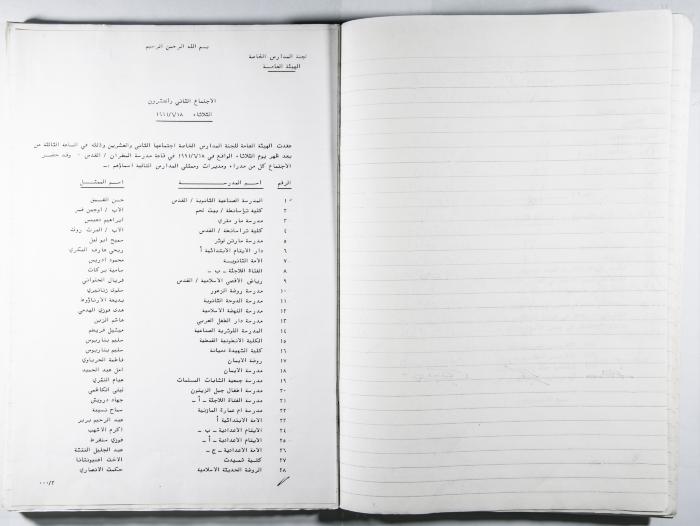 بسم الله الرحمن الرحيم
لجنة المدارس الخاصة
الهيئة العامة
الاجتماع الثاني والعشرون
الثلاثاء ١٩٩١/٦/١٨
عقدت الهيئة العامة للجنة المدارس الخاصة اجتماعها الثاني والعشرين وذلك في الساعة الثالثة من
بعد ظهر يوم الثلاثاء الواقع في ١٩٩١/٦/١٨ في قاعة مدرسة المطران / القدس - وقد حضر
الاجتماع كل من مدراء ومديرات وممثلي المدارس التالية اسماؤهم :-
الرقم اسم المدرسة اسم الممثل
١ المدرسة الصناعية الثانوية / القدس حسن القيق
٢ كلية تراسانطة / بيت لحم الاب / اوجين
٣ مدرسة مار متري ابراهيم
٤ كلية تراسانطة / القدس الاب /
٥ مدرسة مارتن لوثر سميح ابو
٦ دار الايتام الابتدائية أ ربحي عارف البكري
٧ الامة الثانوية محمود ادريس
٨ الفتاة اللاجئة - ب - سامية بركات
٩ رياض الأقصى الاسلامية / القدس فريال الحلواني
١٠ مدرسة روضة الزهور سلوى زنانيري
١١ مدرسة الدوحة الثانوية بديعة الارناؤوط
١٢ مدرسة النهضة الاسلامية هدى فوزي الهدمي
١٣ مدرسة دار الطفل العربي هاشم الزين
١٤ المدرسة اللوثرية الصناعية ميشيل
١٥ الكلية الانطونية القبطية سليم بناريوس
١٦ كلية الشهيدة دميانة سليم بناريوس
١٧ روضة الايمان فاطمة الخرباوي
١٨ مدرسة الايمان امل عبد الحميد
١٩ مدرسة جمعية الشابات المسلمات هيام النقري
٢٠ مدرسة اطفال جبل الزيتون ليلى الكاظمي
٢١ مدرسة الفتاة اللاجئة - أ - جهاد درويش
٢٢ مدرسة ام عمارة المازنية سماح نسيبة
٢٣ الامة الابتدائية أ عبد الرحيم بربر
٢٤ الايتام الاعدادية - ب - اكرم الاشهب
٢٥ الايتام الاعدادية - أ - فوزي سنقرط
٢٦ الامة الاعدادية - ج - عبد الجليل النتشة
٢٧ كلية شميدت الاخت
٢٨ الروضة الحديثة الاسلامية حكمت الانصاري
٠٠٠/٢